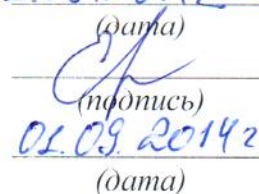 (дата)
(подпись)
01.09.2014г
(дата)